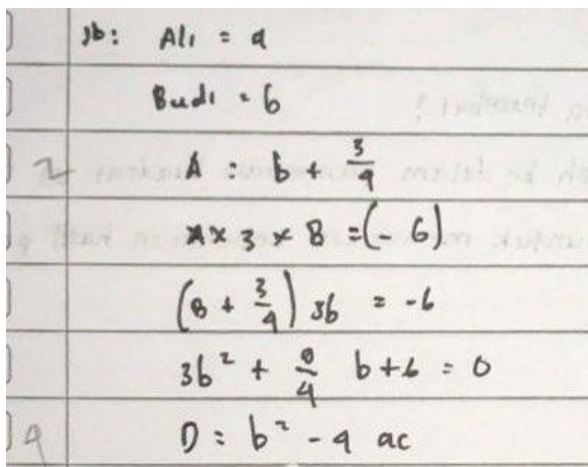 Jb: Ali = a
Budi = b
2 A = b + 3/4
A x 3 x B = (-6)
(B + 3/4) 3b = -6
3b² + 9/4 b + 6 = 0
4 D = b² - 4 ac